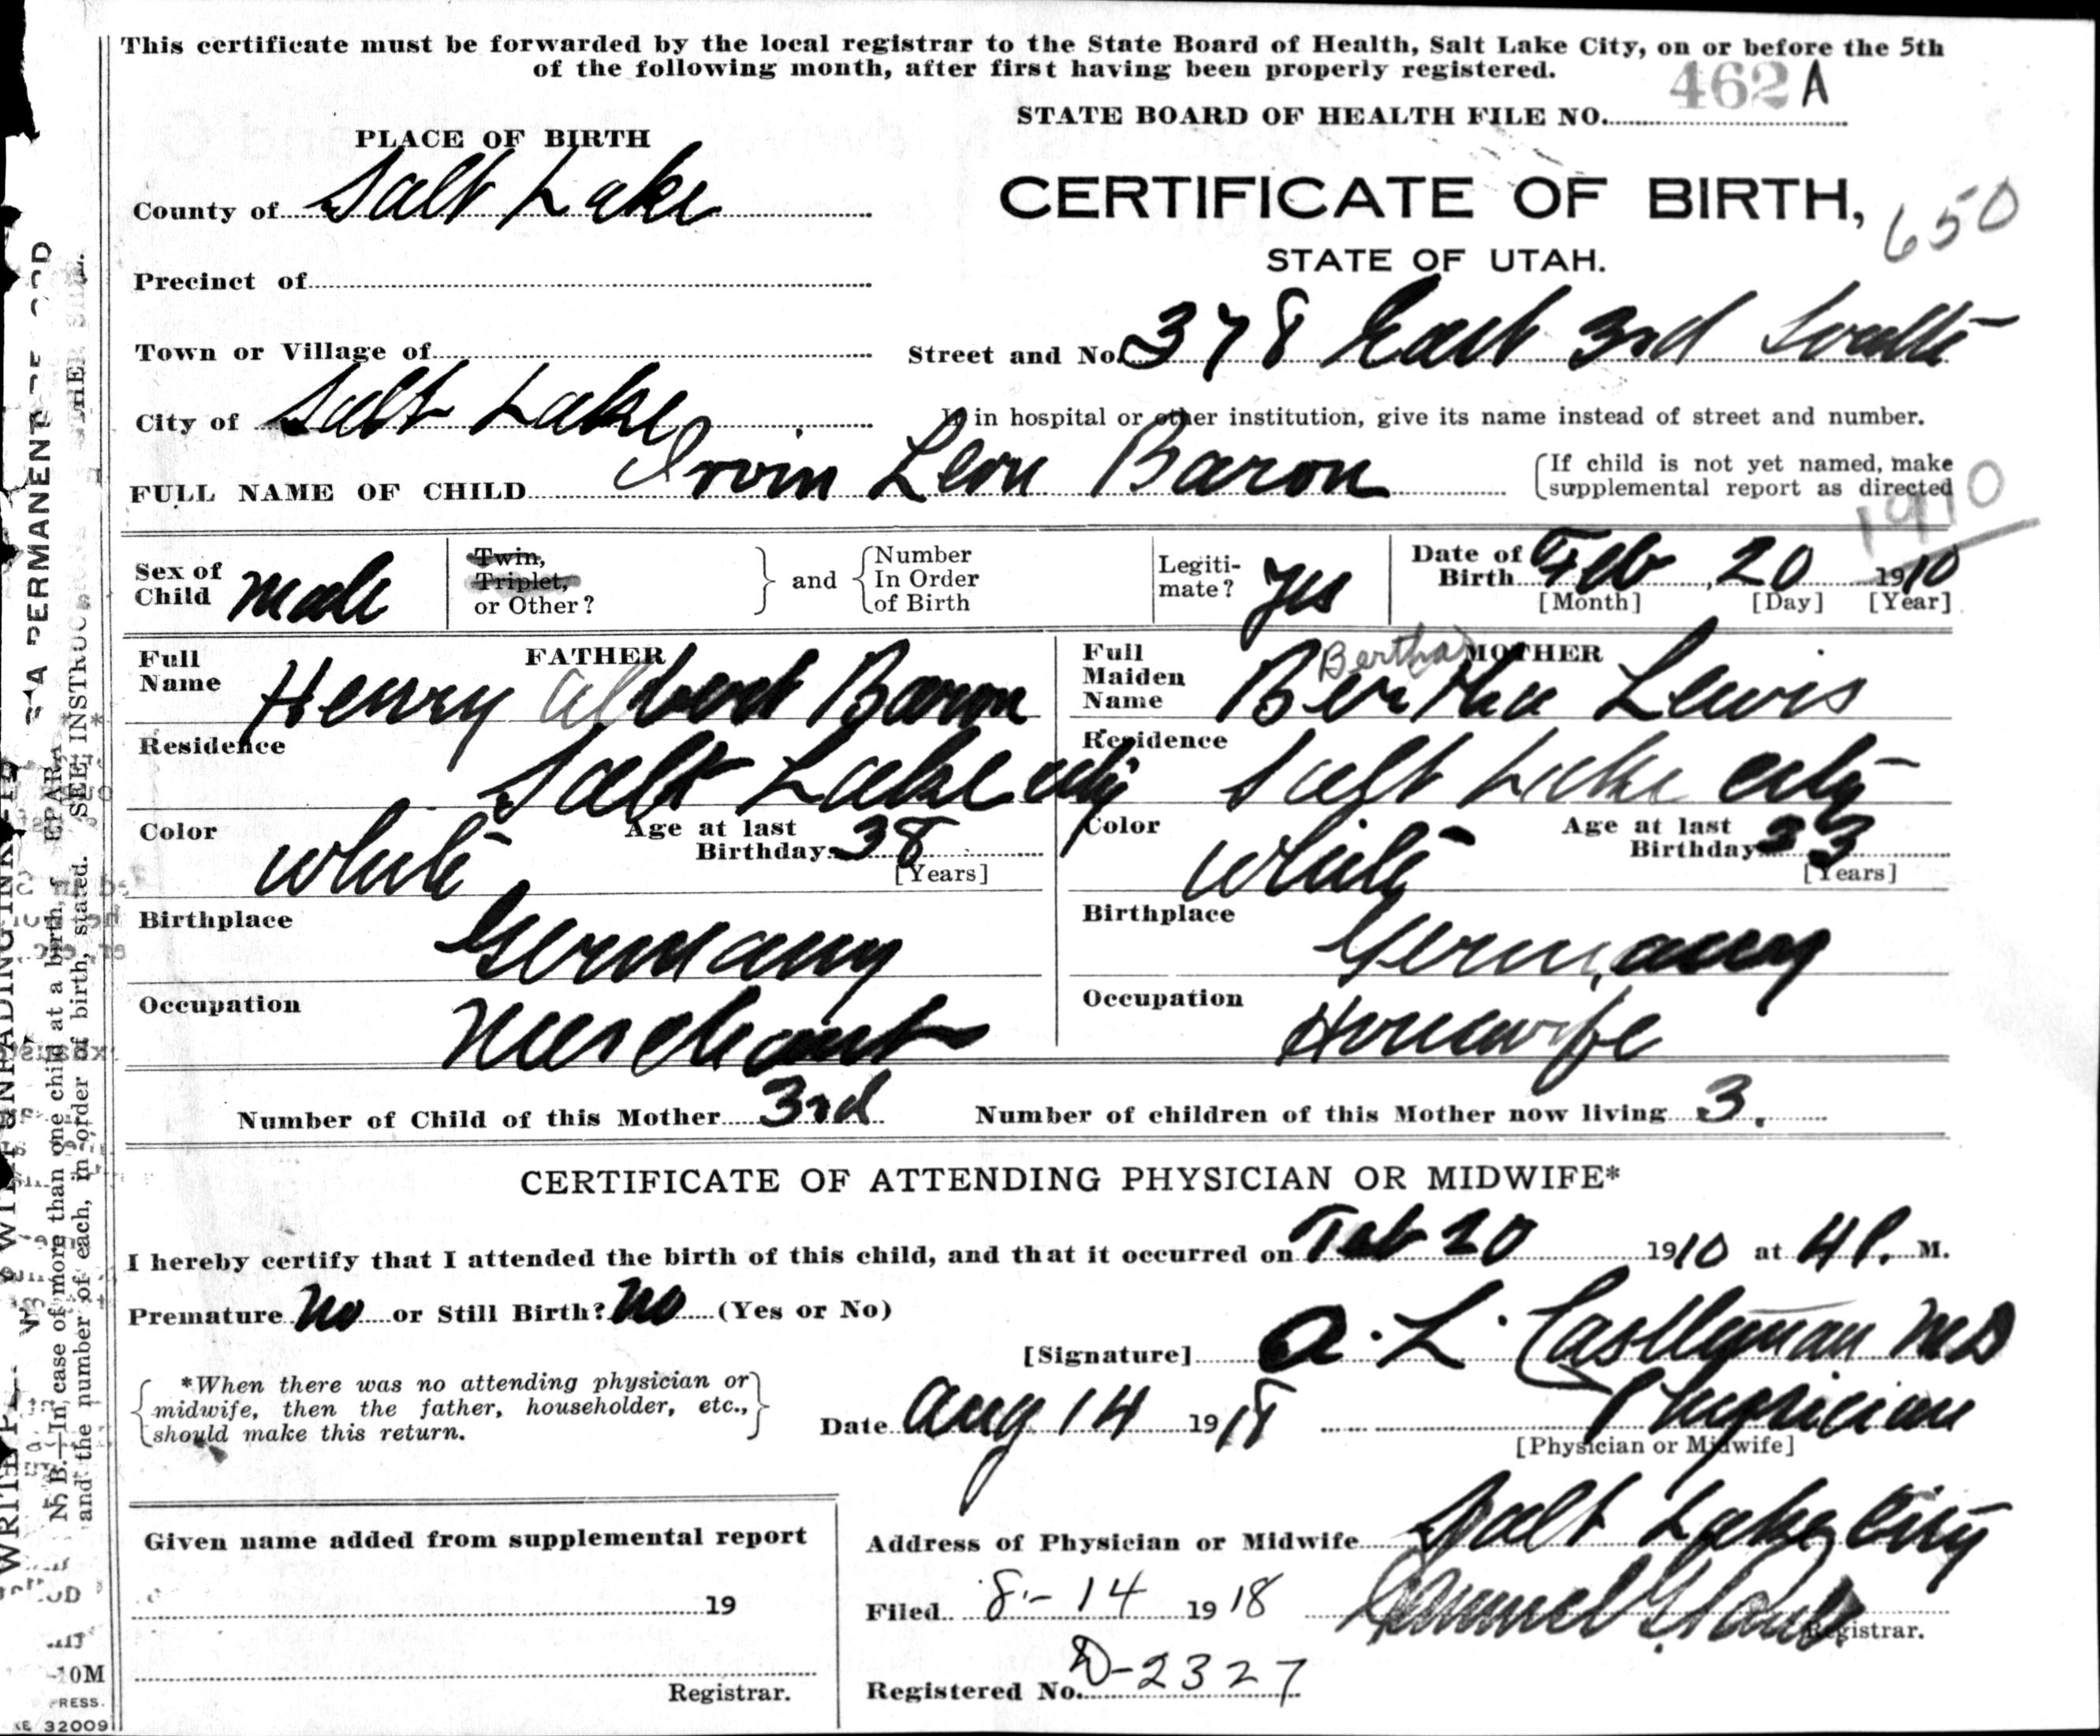 This certificate must be forwarded by the local registrar to the State Board of Health, Salt Lake City, on or before the 5th
of the following month, after first having been properly registered.
462 A
STATE BOARD OF HEALTH FILE NO.
PLACE OF BIRTH
County of Salt Lake
CERTIFICATE OF BIRTH,
650
STATE OF UTAH.
Precinct of
Town or Village of
Street and No. 378 East 3rd South
City of Salt Lake
If in hospital or other institution, give its name instead of street and number.
FULL NAME OF CHILD Irvin Leon Baron
If child is not yet named, make
supplemental report as directed
1910
Sex of Child Male
Twin, Triplet, or Other?
and
Number In Order of Birth
Legitimate? Yes
Date of Birth Feb, 20 1910
[Month] [Day] [Year]
FATHER
Full Name Henry Albert Baron
Bertha MOTHER
Full Maiden Name Bertha Lewis
Residence Salt Lake City
Residence Salt Lake City
Color White
Age at last Birthday 38
[Years]
Color White
Age at last Birthday 33
[Years]
Birthplace Germany
Birthplace Germany
Occupation Merchant
Occupation Housewife
Number of Child of this Mother 3rd
Number of children of this Mother now living 3.
CERTIFICATE OF ATTENDING PHYSICIAN OR MIDWIFE*
I hereby certify that I attended the birth of this child, and that it occurred on Feb 20 1910 at 4 P. M.
Premature No or Still Birth? No (Yes or No)
[Signature] A. L. Castleman MD
*When there was no attending physician or
midwife, then the father, householder, etc.,
should make this return.
Date Aug 14 1918
Physician
[Physician or Midwife]
Given name added from supplemental report
Address of Physician or Midwife Salt Lake City
19
Filed 8-14 1918
Samuel G. Paul
Registrar.
Registrar.
Registered No. D-2327
A PERMANENT
SEE INSTRUC
N. B.—In case of more than one child at a birth,
and the number of each, in order of birth, stated.
10M
32009